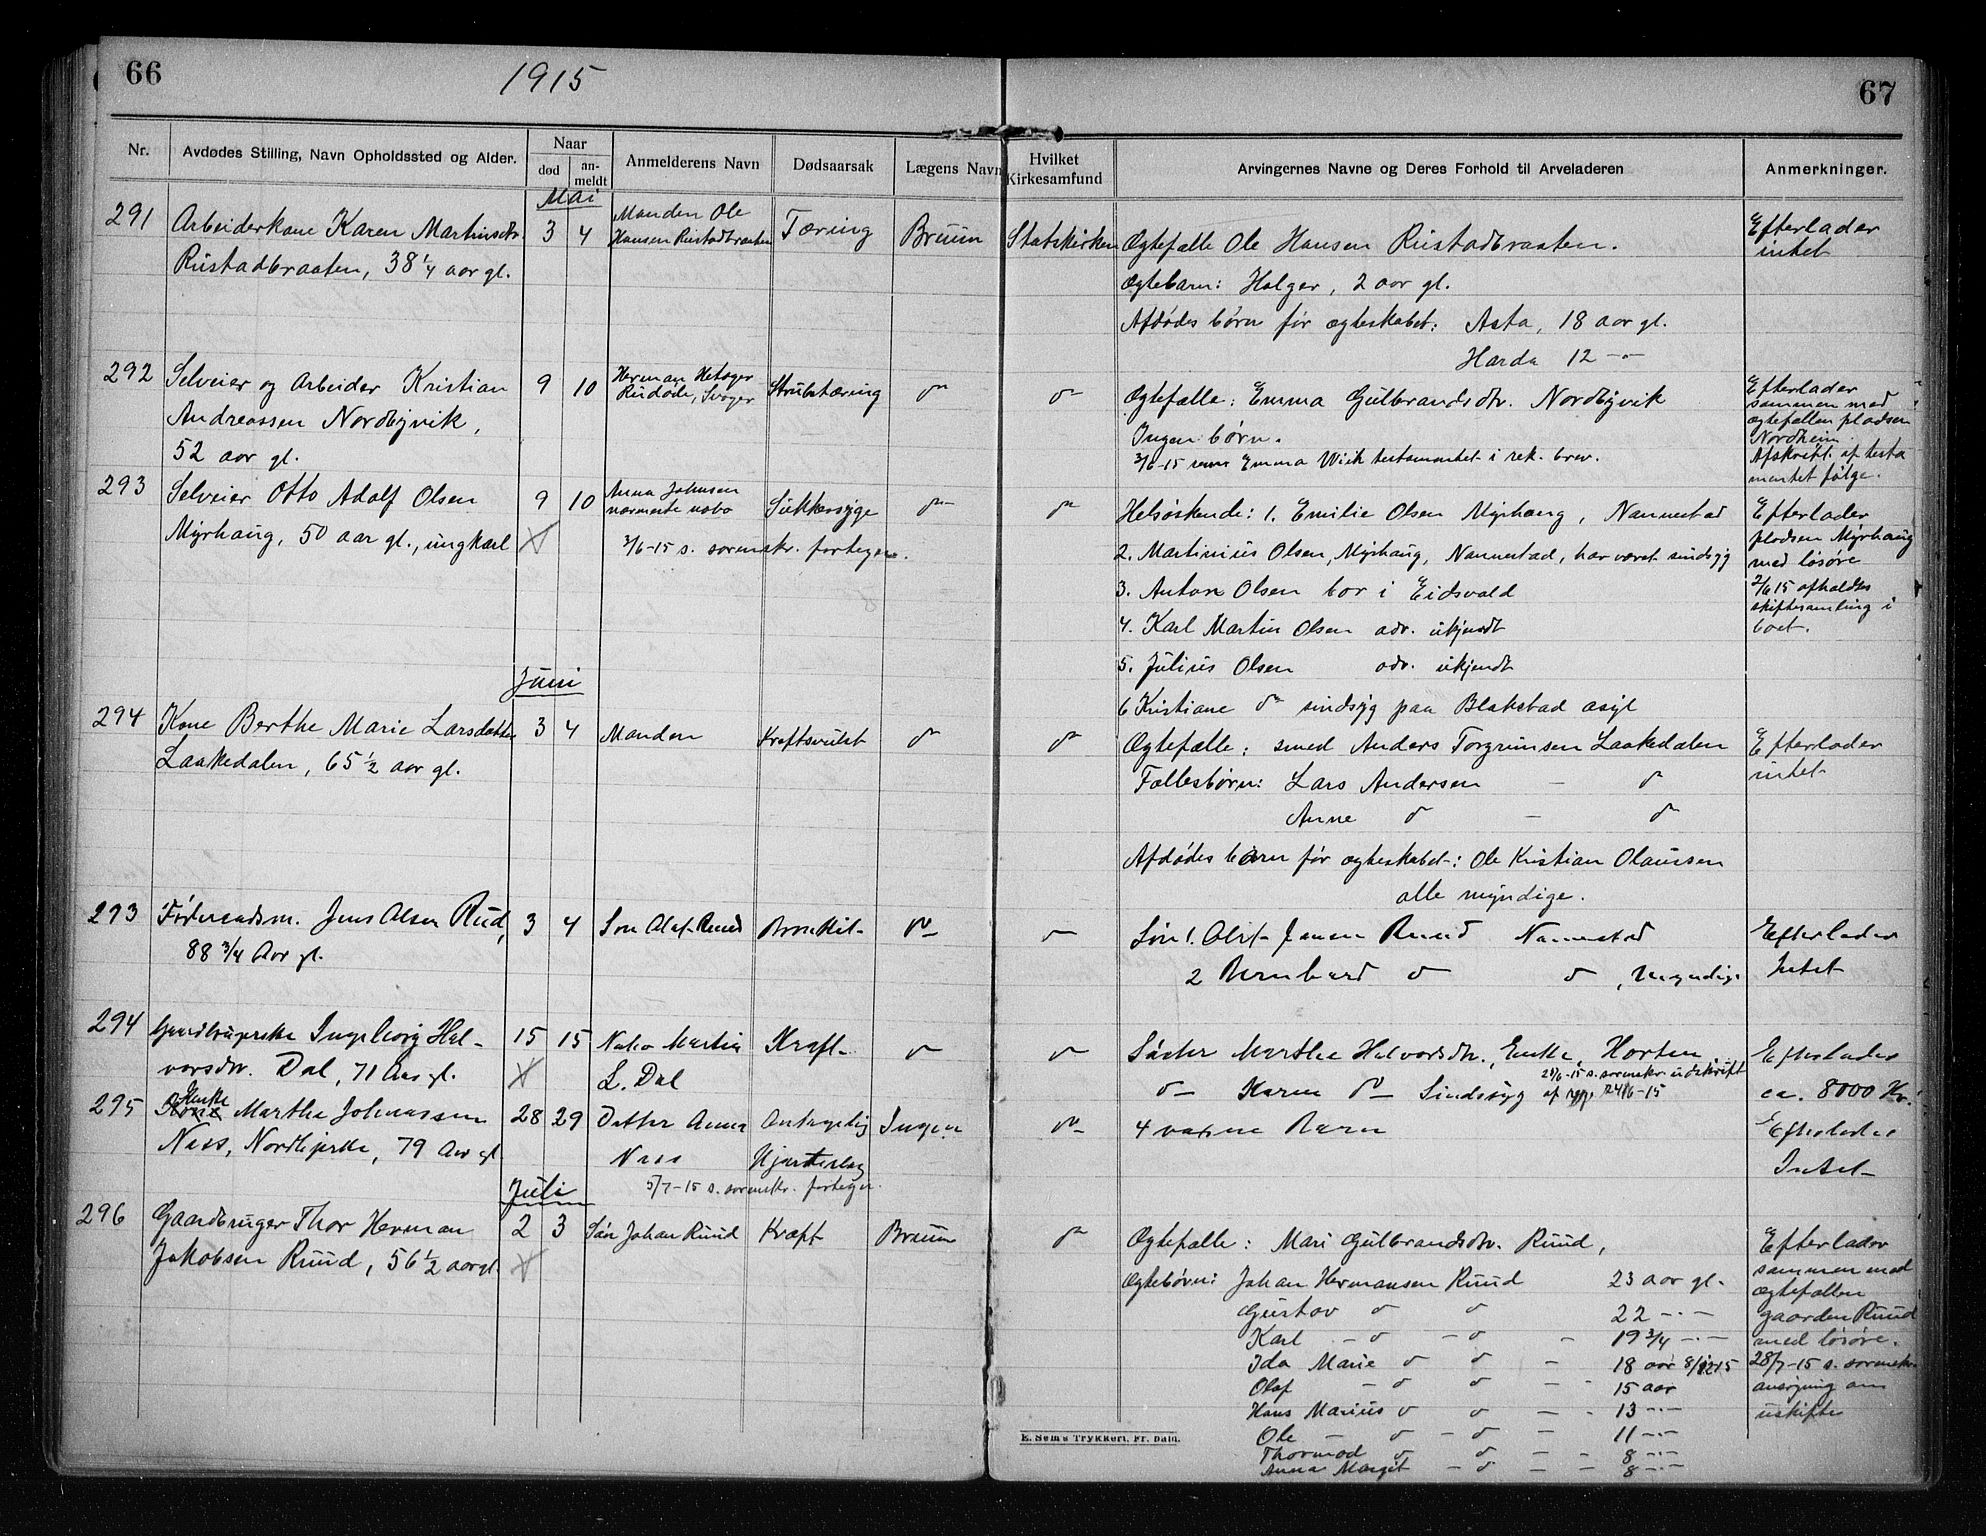 66
1915
67
Nr.
Avdødes Stilling, Navn Opholdssted og Alder.
Naar
død
an-
meldt
Anmelderens Navn
Dødsaarsak
Lægens Navn
Hvilket
Kirkesamfund
Arvingernes Navne og Deres Forhold til Arveladeren
Anmerkninger.
Mai
291
Arbeiderkone Karen Martinsdtr.
Rustadbraaten, 38 1/4 aar gl.
3
4
Manden Ole
Hansen Rustadbraaten
Tæring
Bruun
Statskirken
Ægtefælle Ole Hansen Rustadbraaten.
Ægtebarn: Holger, 2 aar gl.
Afdødes børn før ægteskabet: Asta, 18 aar gl.
Harda 12 -"-
Efterlader
intet
292
Selveier og arbeider Kristian
Andreassen Nordbyvik,
52 aar gl.
9
10
Herman
Svoger
Strubetæring
do
do
Ægtefælle: Emma Gulbrandsdtr. Nordbyvik
Ingen børn.
3/6-15 Emma Wiik testamentet i rek. brev.
Efterlader
sammen med
ægtefællen pladsen
Nordheim.
Afskrift af testa
mentet følge.
293
Selveier Otto Adolf Olsen
Myrhaug, 50 aar gl., ungkarl
9
10
Anna Johnsen
nærmeste nabo
Sukkersyge
do
do
3/6-15 s. sorenskr. fortegn.
Helsøskende: 1. Emilie Olsen Myrhaug, Nannestad
2. Martinius Olsen, Myrhaug, Nannestad, har været sindsyg
3. Anton Olsen bor i Eidsvold
4. Karl Martin Olsen adr. ukjendt
5. Julius Olsen adr. ukjendt
6 Kristiane do sindsyg paa Blakstad asyl
Efterlader
pladsen Myrhaug
med løsøre
2/6 15 afholdes
skiftesamling i
boet.
Juni
294
Kone Berthe Marie Larsdatter
Laakedalen, 65 1/2 aar gl.
3
4
Manden
Kræftsvulst
do
do
Ægtefælle: smed Anders Torgrimsen Laakedalen
Fællesbørn: Lars Andersen - do
Anne do - do
Afdødes barn før ægteskabet: Ole Kristian Olaussen
alle myndige.
Efterlader
intet
293
Føderaadsm. Jens Olsen Rud,
88 3/4 Aar gl.
3
4
Søn Olaf Ruud
Bronkit
do
do
Søn 1. Olaf Jensen Ruud Nannestad
2 Bernhard do do, Myndige
Efterlader
Intet
294
Gaardbrugerske Ingeborg Hal-
vorsdtr. Dal, 71 Aar gl.
15
15
Nabo Martin
L. Dal
Kræft
do
do
Søster Marthe Halvorsdtr., Enke, Horten
do Karen do Sindssyg
Efterlader
ca. 8000 Kr.
295
Enke
Kone Marthe Johannessen
Næss, Nordbjerke, 79 Aar gl.
28
29
Datter Anna
Næss
Antagelig
Hjerteslag
Ingen
do
4 voxne Børn
Efterlader
Intet
5/7-15 s. sorenskr. fortegn.
Juli
296
Gaardbruger Thor Herman
Jakobsen Ruud, 56 1/2 aar gl.
2
3
Søn Johan Ruud
Kræft
Bruun
do
Ægtefælle: Mari Gulbrandsdtr. Ruud,
Ægtebørn: Johan Hermansen Ruud 23 aar gl.
Gustav do do 22 -"-
Karl - do - do - 19 3/4 -"-
Ida Marie do do - 18 aar
Olaf - do do - - 15 aar
Hans Marius do do - - 13 -"-
Ole - do - do - 11 -"-
Thormod do do - - 8 -"-
Anna Margit - do - - 8 -"-
Efterlader
sammen med
ægtefællen
gaarden Ruud
med løsøre.
28/7-15 s. sorenskr.
ansøgning om
uskifte
E. Sem's Trykkeri, Fr. Hald.